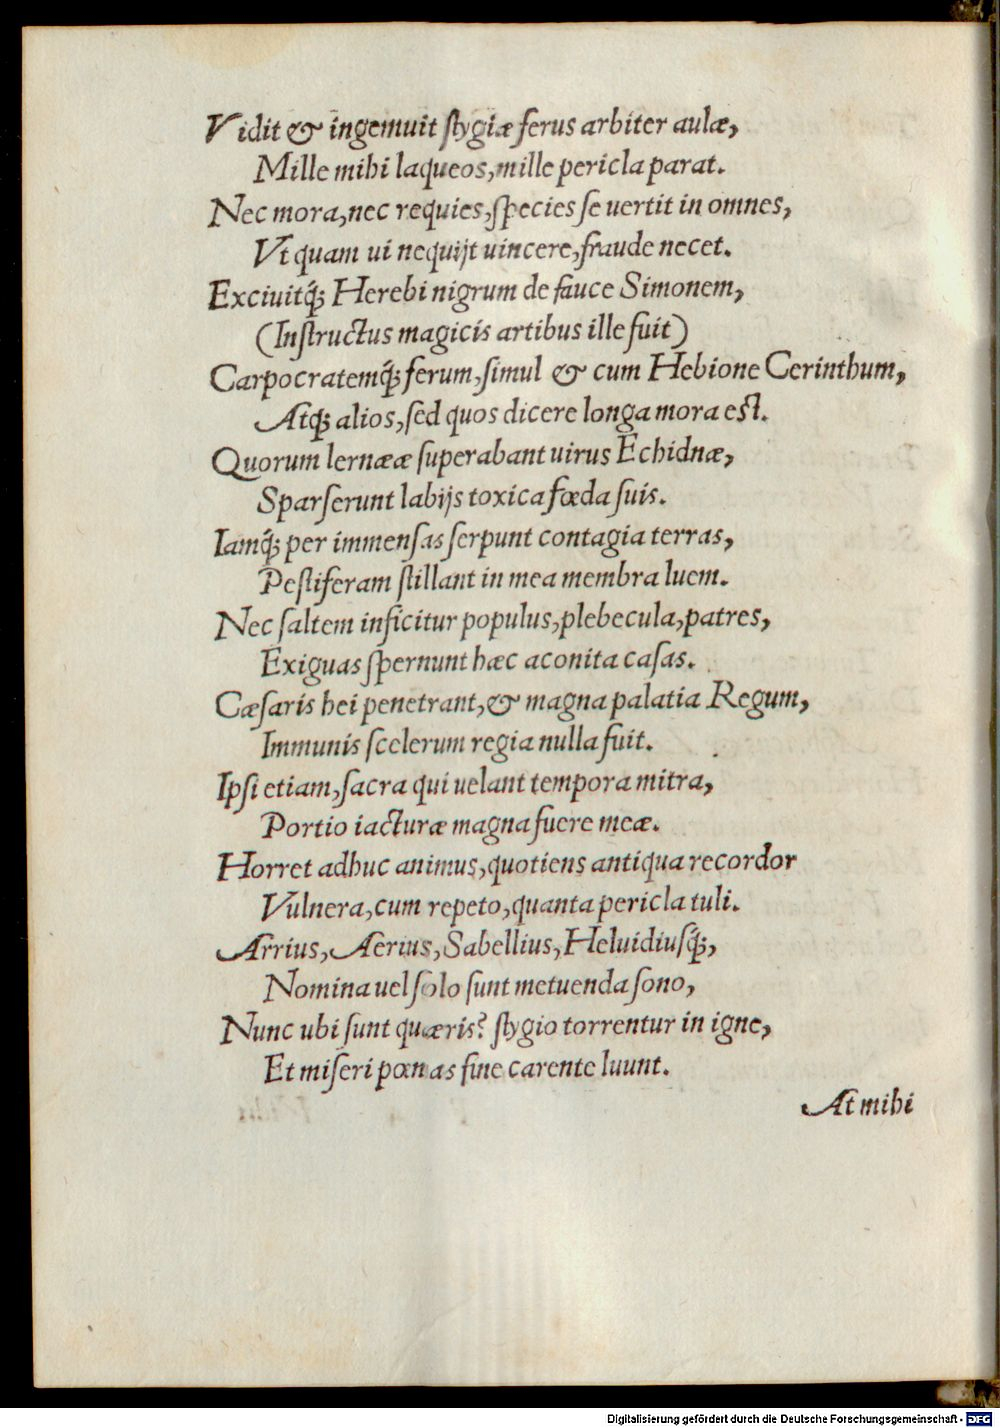 Vidit & ingemuit ſtygiæ ferus arbiter aulæ,
Mille mihi laqueos, mille pericla parat.
Nec mora, nec requies, ſpecies ſe uertit in omnes,
Vt quam ui nequijt uincere, fraude necet.
Exciuitq́; Herebi nigrum de fauce Simonem,
(Inſtructus magicis artibus ille fuit)
Carpocratemq́; ferum, ſimul & cum Hebione Cerinthum,
Atq; alios, ſed quos dicere longa mora eſt.
Quorum lernææ ſuperabant uirus Echidnæ,
Sparſerunt labijs toxica fœda ſuis.
Iamq́; per immenſas ſerpunt contagia terras,
Peſtiferam ſtillant in mea membra luem.
Nec ſaltem inficitur populus, plebecula, patres,
Exiguas ſpernunt hæc aconita caſas.
Cæſaris hei penetrant, & magna palatia Regum,
Immunis ſcelerum regia nulla fuit.
Ipſi etiam, ſacra qui uelant tempora mitra,
Portio iacturæ magna fuere meæ.
Horret adhuc animus, quotiens antiqua recordor
Vulnera, cum repeto, quanta pericla tuli.
Arrius, Aerius, Sabellius, Heluidiusq́;,
Nomina uel ſolo ſunt metuenda ſono,
Nunc ubi ſunt quæris? ſtygio torrentur in igne,
Et miſeri pœnas fine carente luunt.
At mihi
Digitalisierung gefördert durch die Deutsche Forschungsgemeinschaft - DFG